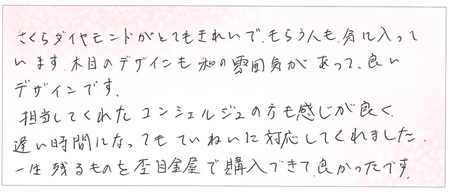 さくらダイヤモンドがとてもきれいで、もらう人も、気に入って
います。木目のデザインも和の雰囲気があって、良い
デザインです。
担当してくれたコンシェルジュの方も感じが良く、
遅い時間になってもていねいに対応してくれました。
一生残るものを杢目金屋で購入できて、良かったです。